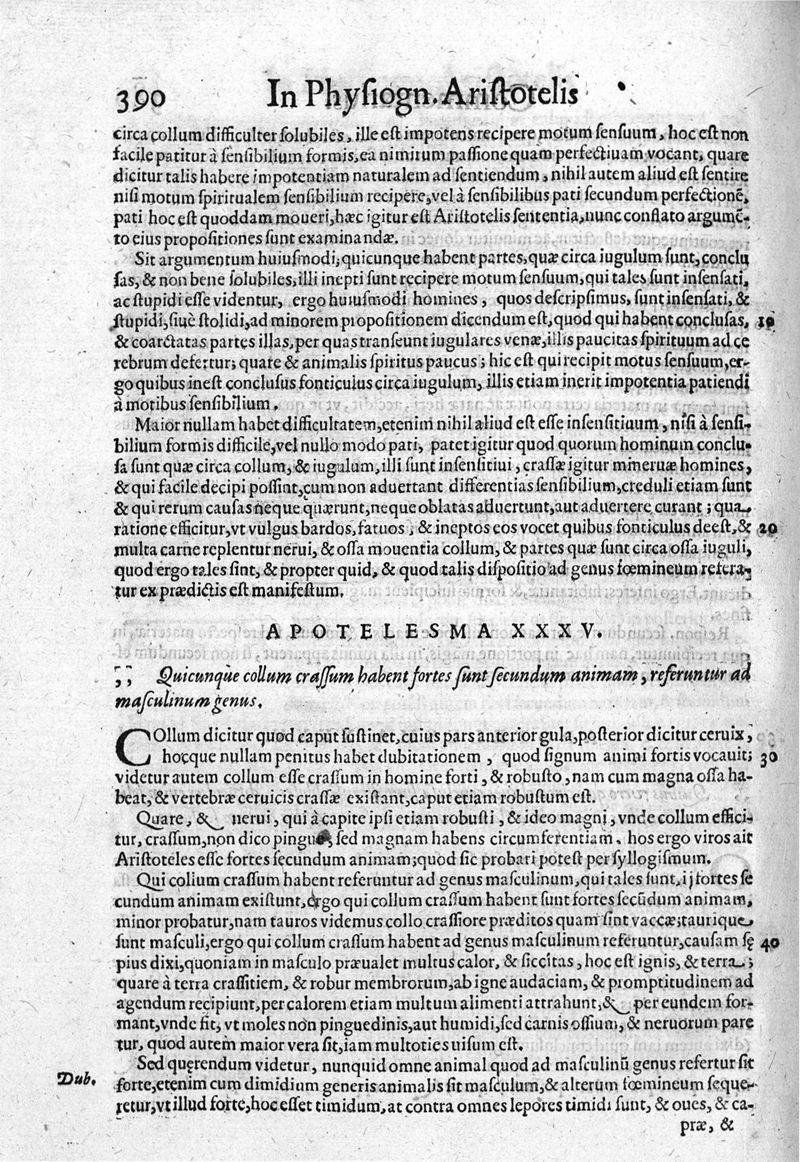 390 In Physiogn. Aristotelis
circa collum difficulter solubiles, ille est impotens recipere motum sensuum, hoc est non
facile patitur à sensibilium formis, ea nimirum passione quam perfectiuam vocant, quare
dicitur talis habere impotentiam naturalem ad sentiendum, nihil autem aliud est sentire
nisi motum spiritualem sensibilium recipere, vel à sensibilibus pati secundum perfectionẽ,
pati hoc est quoddam moueri, hæc igitur est Aristotelis sententia, nunc conflato argumẽ-
to eius propositiones sunt examinandæ.
Sit argumentum huiusmodi; quicunque habent partes, quæ circa iugulum sunt, conclu
sas, & non bene solubiles, illi inepti sunt recipere motum sensuum, qui tales sunt insensati,
ac stupidi esse videntur, ergo huiusmodi homines, quos descripsimus, sunt insensati, &
stupidi, siuè stolidi, ad minorem propositionem dicendum est, quod qui habent conclusas, 10
& coarctatas partes illas, per quas transeunt iugulares venæ, illis paucitas spirituum ad ce
rebrum defertur; quare & animalis spiritus paucus; hic est qui recipit motus sensuum, er-
go quibus inest conclusus fonticulus circa iugulum, illis etiam inerit impotentia patiendi
à motibus sensibilium.
Maior nullam habet difficultatem, etenim nihil aliud est esse insensitiuum, nisi à sensi-
bilium formis difficile, vel nullo modo pati, patet igitur quod quorum hominum conclu-
sa sunt quæ circa collum, & iugulum, illi sunt insensitiui, crassæ igitur mineruæ homines,
& qui facile decipi possint, cum non aduertant differentias sensibilium, creduli etiam sunt
& qui rerum causas neque quærunt, neque oblatas aduertunt, aut aduertere curant; qua
ratione efficitur, vt vulgus bardos, fatuos, & ineptos eos vocet quibus fonticulus deest, & 20
multa carne replentur nerui, & ossa mouentia collum, & partes quæ sunt circa ossa iuguli,
quod ergo tales sint, & propter quid, & quod talis dispositio ad genus fœmineum refera-
tur ex prædictis est manifestum.
APOTELESMA XXXV.
,, Quicunque collum crassum habent fortes sunt secundum animam, referuntur ad
masculinum genus.
COllum dicitur quod caput sustinet, cuius pars anterior gula, posterior dicitur ceruix,
hocque nullam penitus habet dubitationem, quod signum animi fortis vocauit; 30
videtur autem collum esse crassum in homine forti, & robusto, nam cum magna ossa ha-
beat, & vertebræ ceruicis crassæ existant, caput etiam robustum est.
Quare, & nerui, qui à capite ipsi etiam robusti, & ideo magni, vnde collum effici-
tur, crassum, non dico pingue, sed magnam habens circumferentiam, hos ergo viros ait
Aristoteles esse fortes secundum animam; quod sic probari potest per syllogismum.
Qui collum crassum habent referuntur ad genus masculinum, qui tales sunt, ij fortes se
cundum animam existunt, ergo qui collum crassum habent sunt fortes secũdum animam,
minor probatur, nam tauros videmus collo crassiore præditos quam sint vaccæ; taurique
sunt masculi, ergo qui collum crassum habent ad genus masculinum referuntur, causam sę 40
pius dixi, quoniam in masculo præualet multus calor, & siccitas, hoc est ignis, & terra;
quare à terra crassitiem, & robur membrorum, ab igne audaciam, & promptitudinem ad
agendum recipiunt, per calorem etiam multum alimenti attrahunt, & per eundem for-
mant, vnde fit, vt moles non pinguedinis, aut humidi, sed carnis ossium, & neruorum pare
tur, quod autem maior vera sit, iam multoties uisum est.
Sed quęrendum videtur, nunquid omne animal quod ad masculinũ genus refertur sit
Dub. forte, etenim cum dimidium generis animalis sit masculum, & alterum fœmineum seque-
retur, vt illud forte, hoc esset timidum, at contra omnes lepores timidi sunt, & oues, & ca-
præ, &